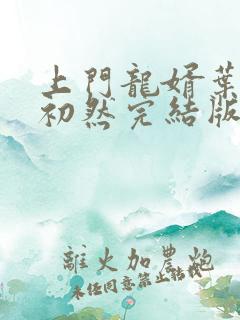 上門龍婿葉
初然完結版
離火加農炮
未任同意禁止轉載